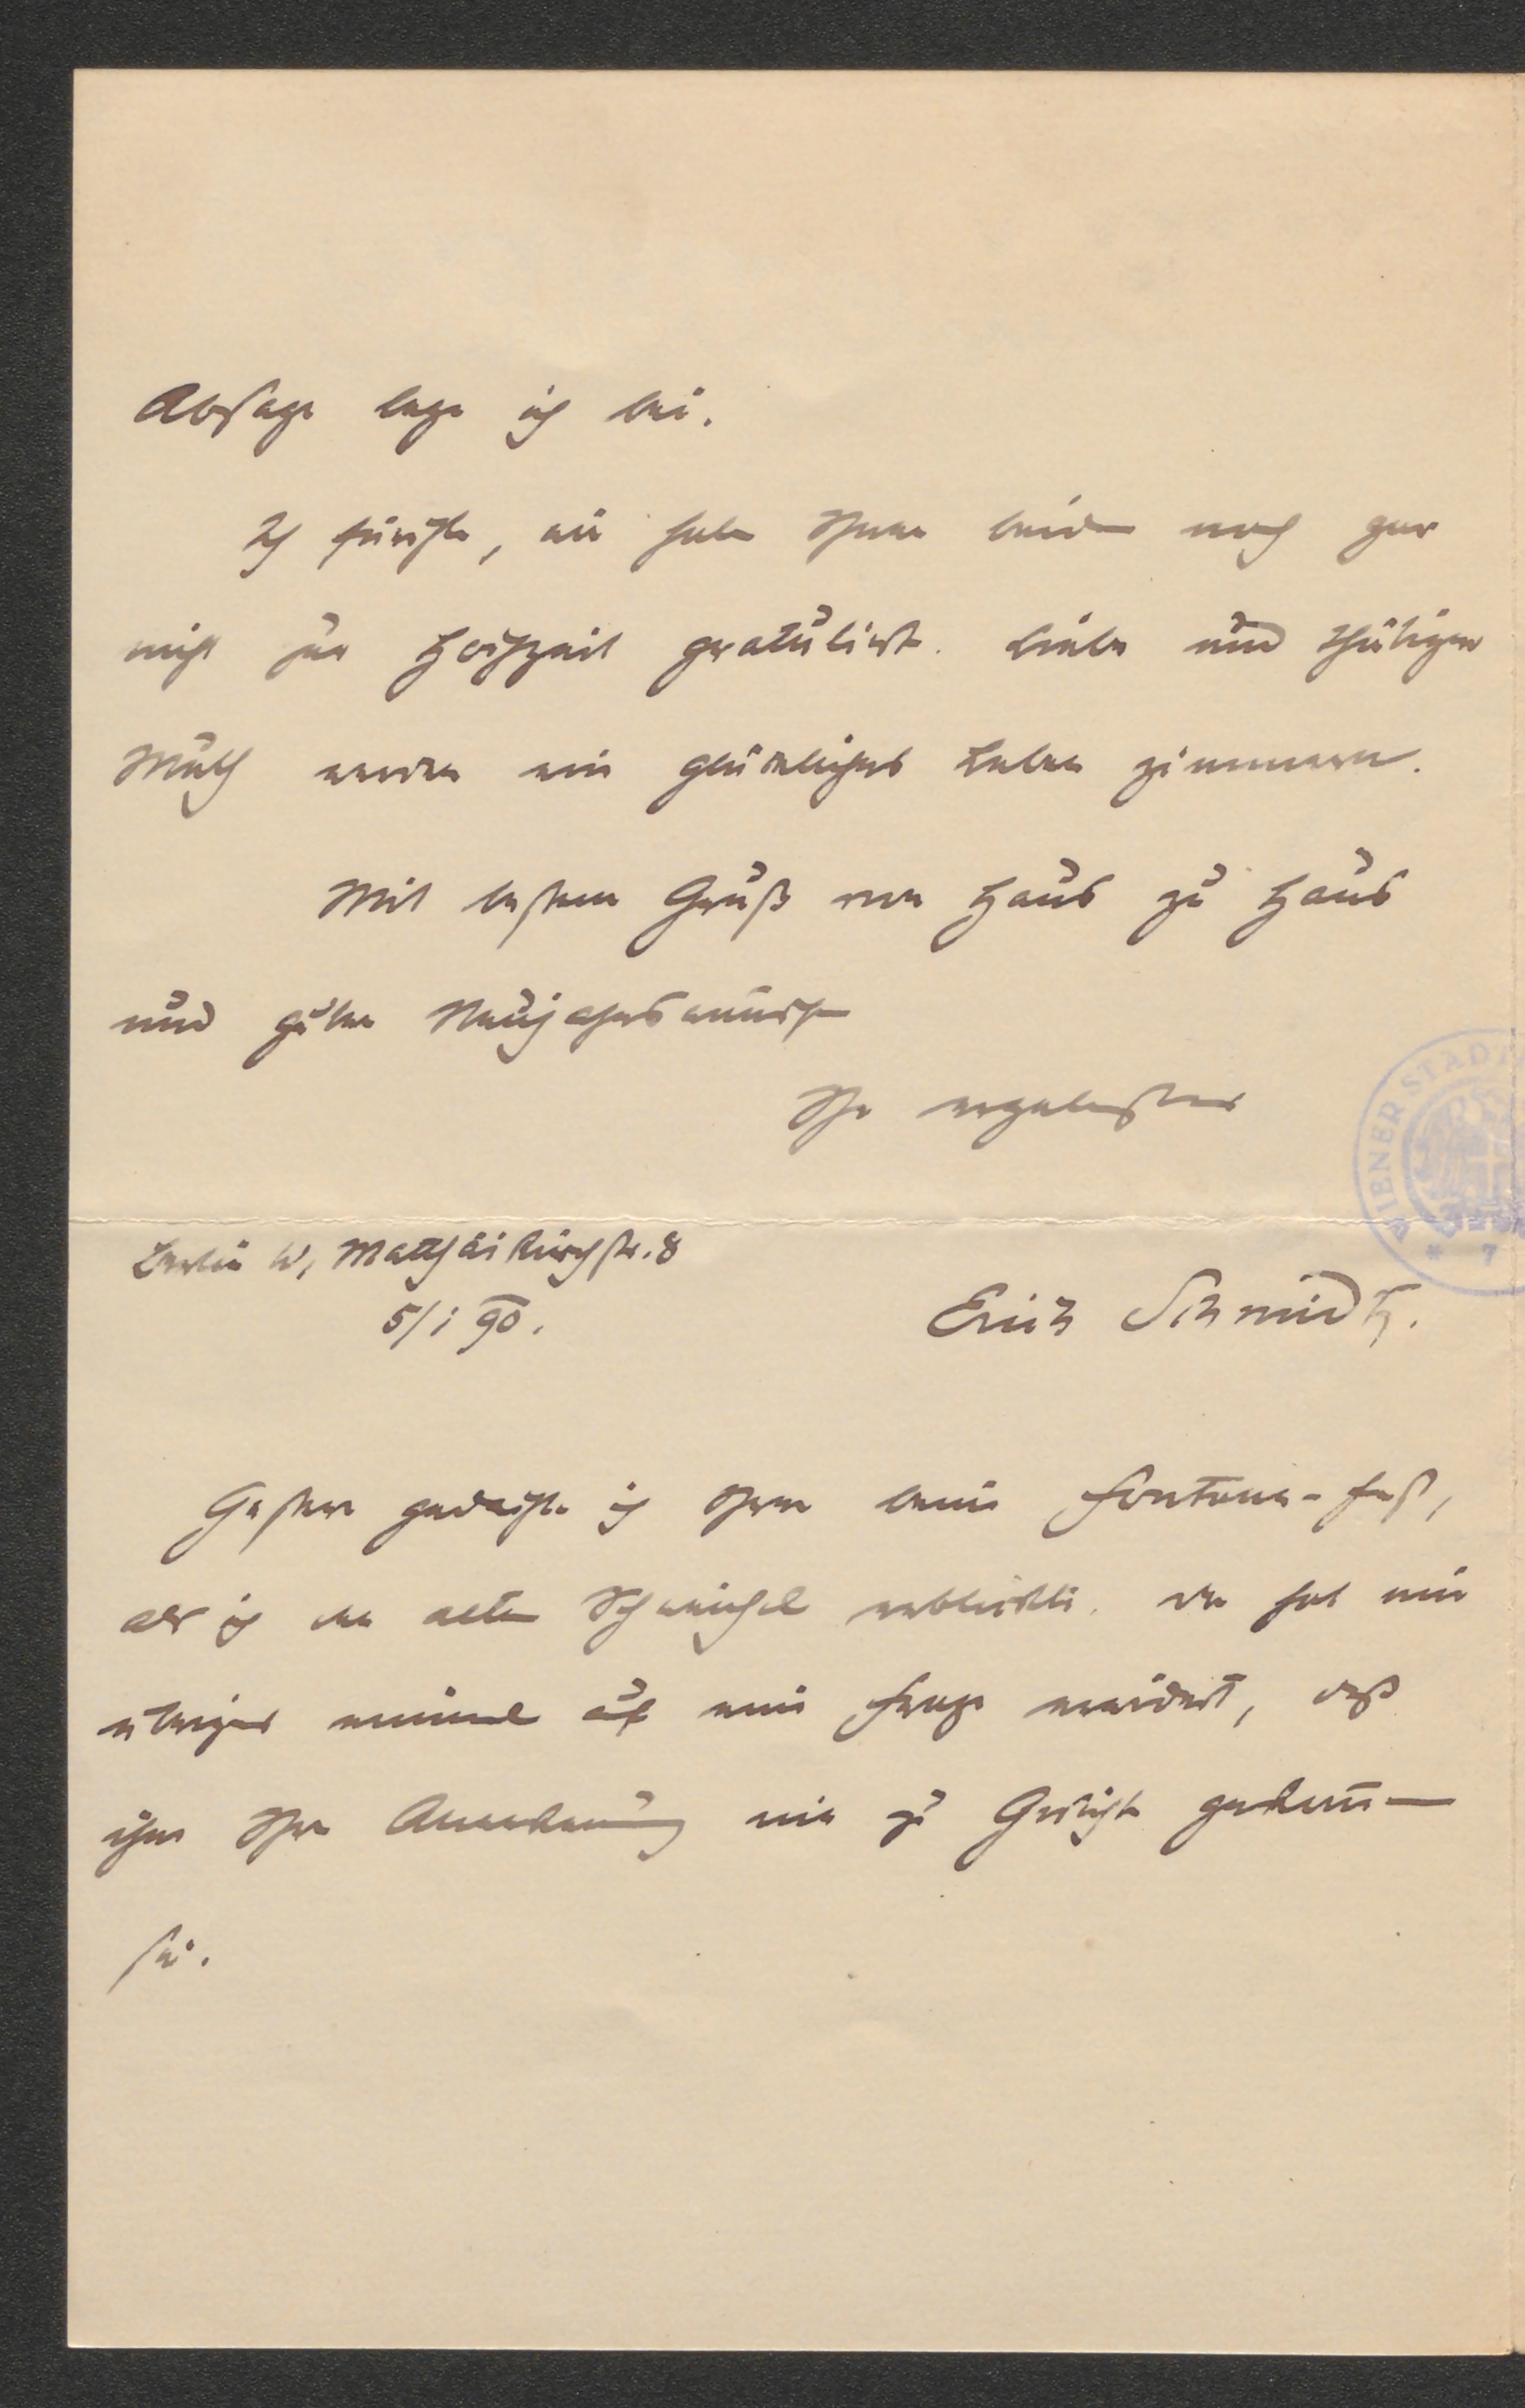 Absage lege ich bei.
Ich fürchte, wir haben Ihnen beiden noch gar
nicht zur Hochzeit gratulirt. Liebe und thätiger
Muth werden ein glückliches Leben zimmern.
Mit bestem Gruß von Haus zu Haus
und guten Neujahrswünschen
Ihr ergebenster
Berlin W, Matthäikirchstr. 8
5/i 90.
Erich Schmidt.
Gestern gedachte ich Ihrer beim Fontane-Fest,
als ich den alten erblickte. Der hat mir
übrigens einmal auf eine Frage erwidert, daß
ihm Ihre nie zu Gesicht gekommen
sei.
WIENER STADT
* 7